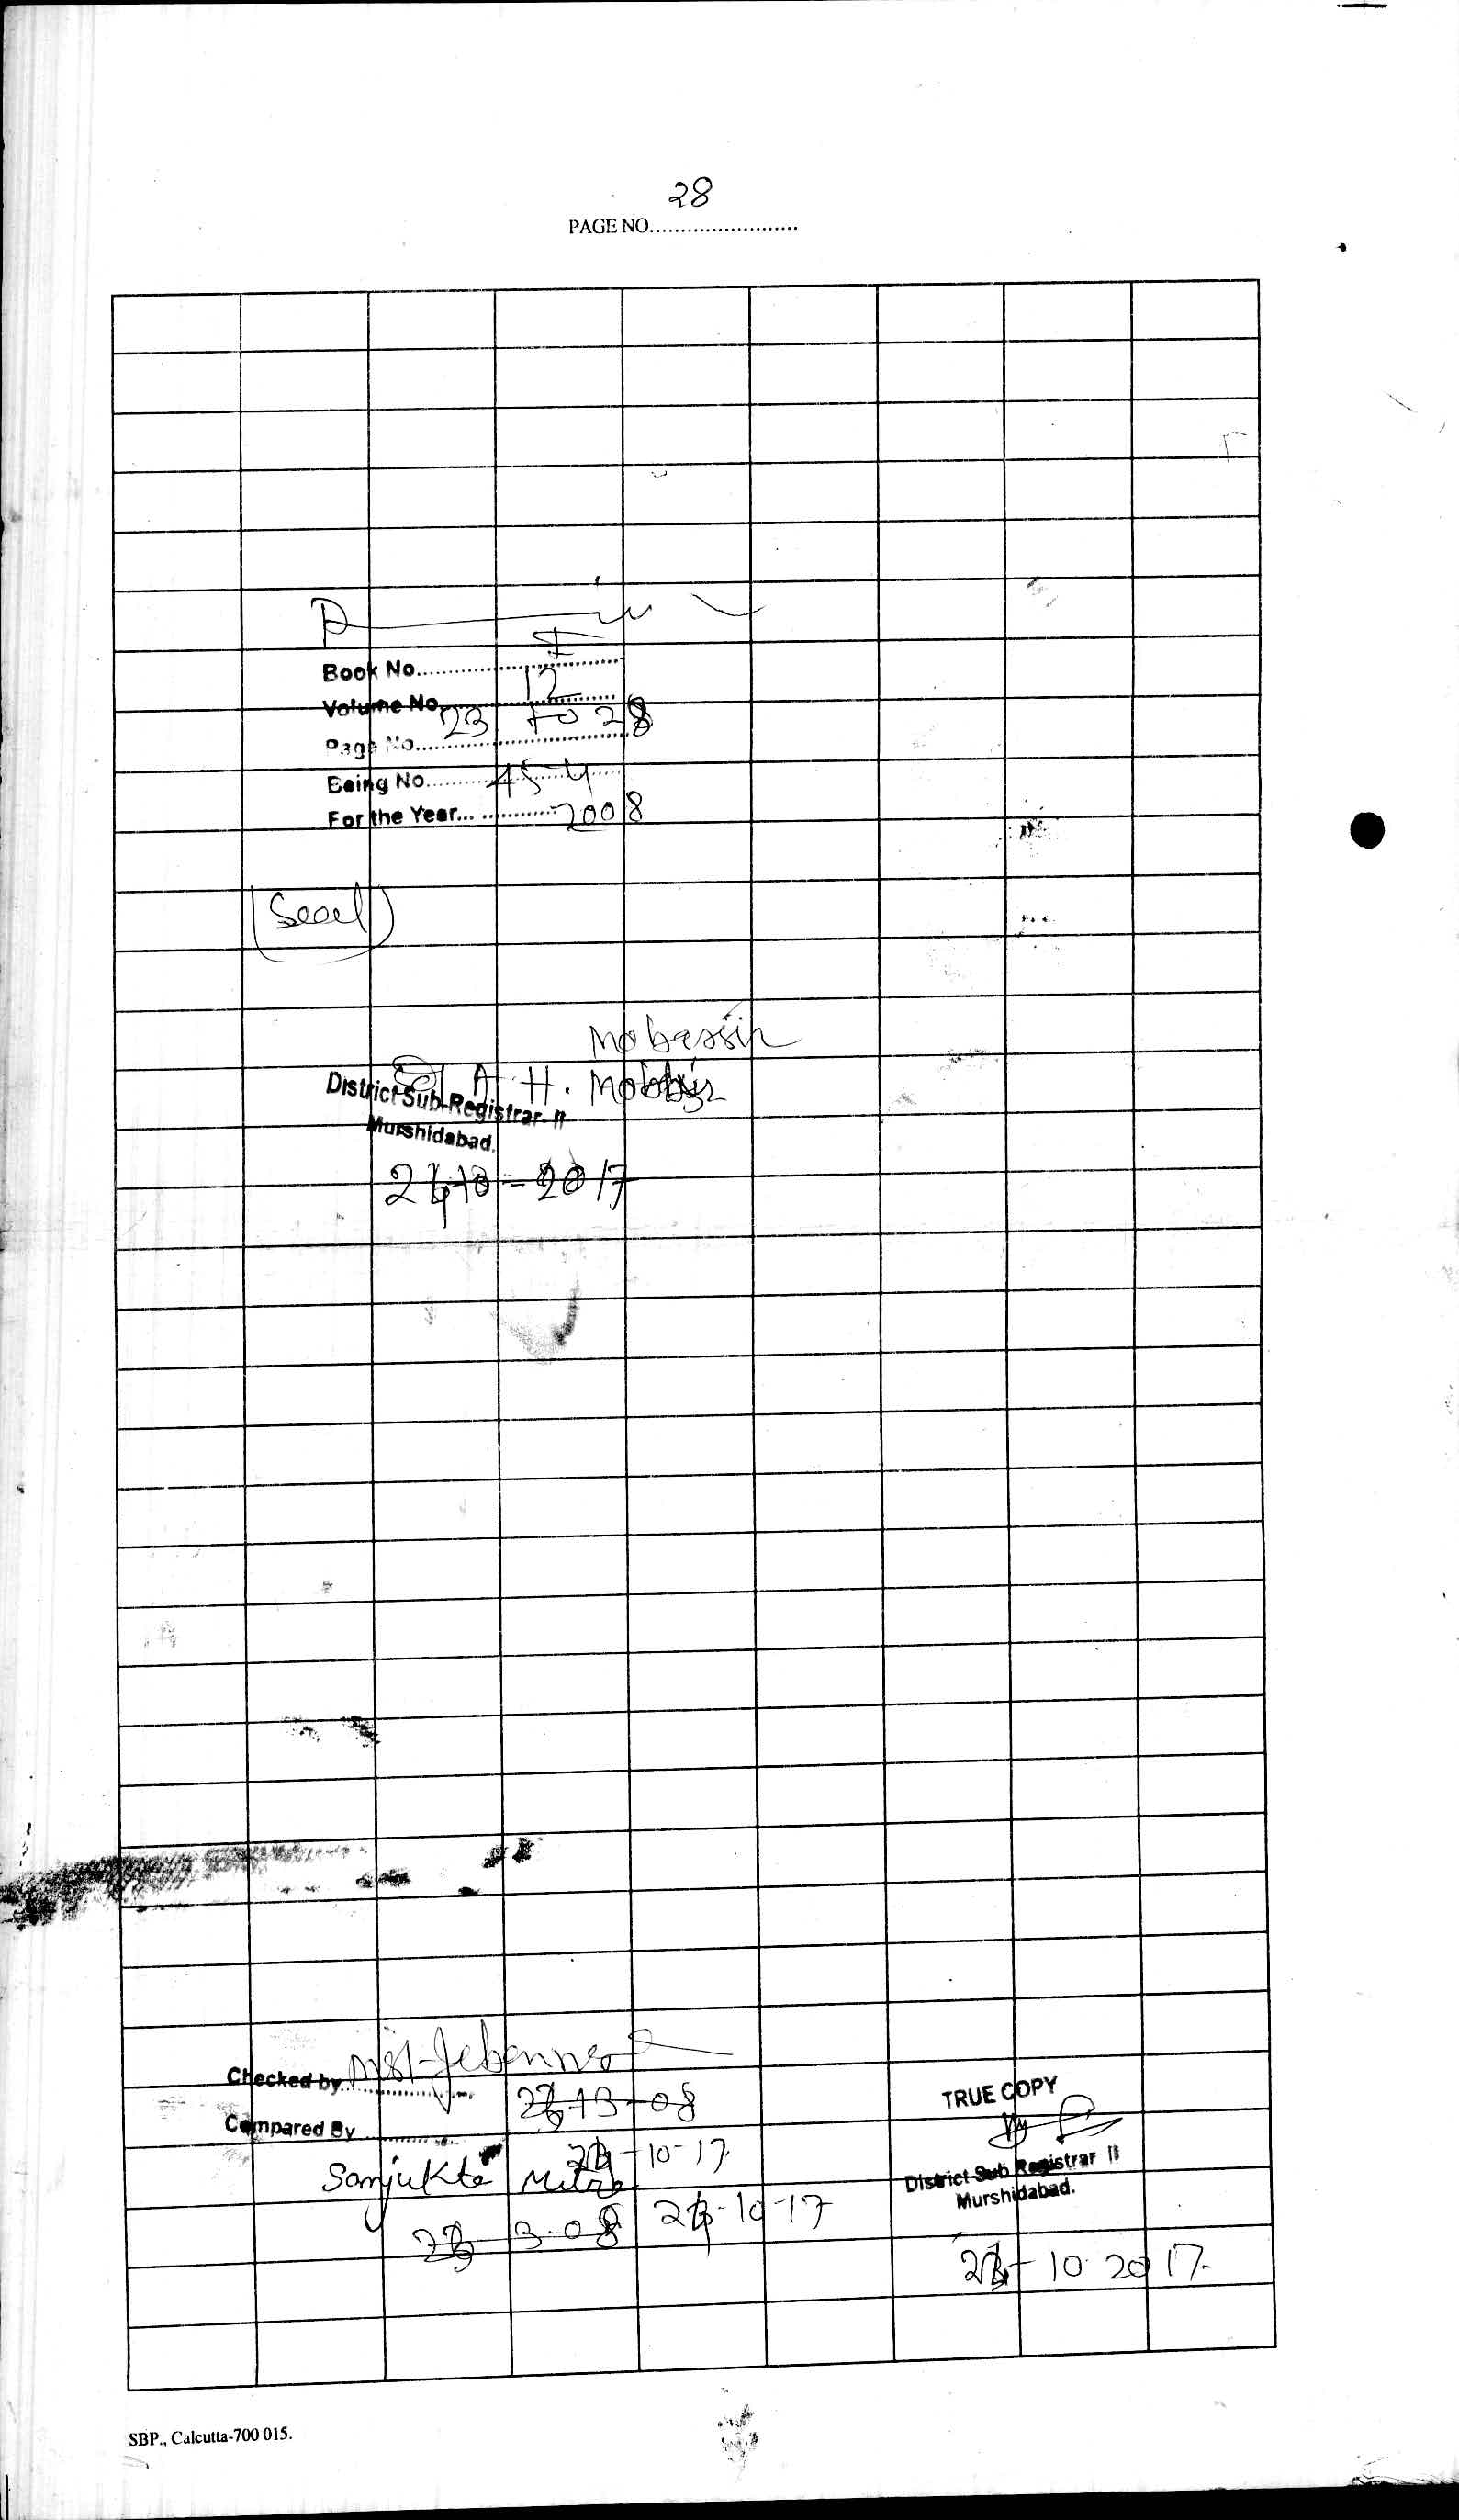 28
PAGE NO.........................
Book No.......I
Volume No.......12
Page No.......23 to 28
Being No.......454
For the Year.......2008
(Seal)
Mobassir
Sd/ A. H.
District Sub-Registrar-II
Murshidabad.
10-2017
Checked by Mst-Jebannesa
-08
Compared By
-10-17
Sanjukta Mitra
3-08 -10-17
TRUE COPY
District Sub Registrar II
Murshidabad.
-10-2017.
SBP., Calcutta-700 015.